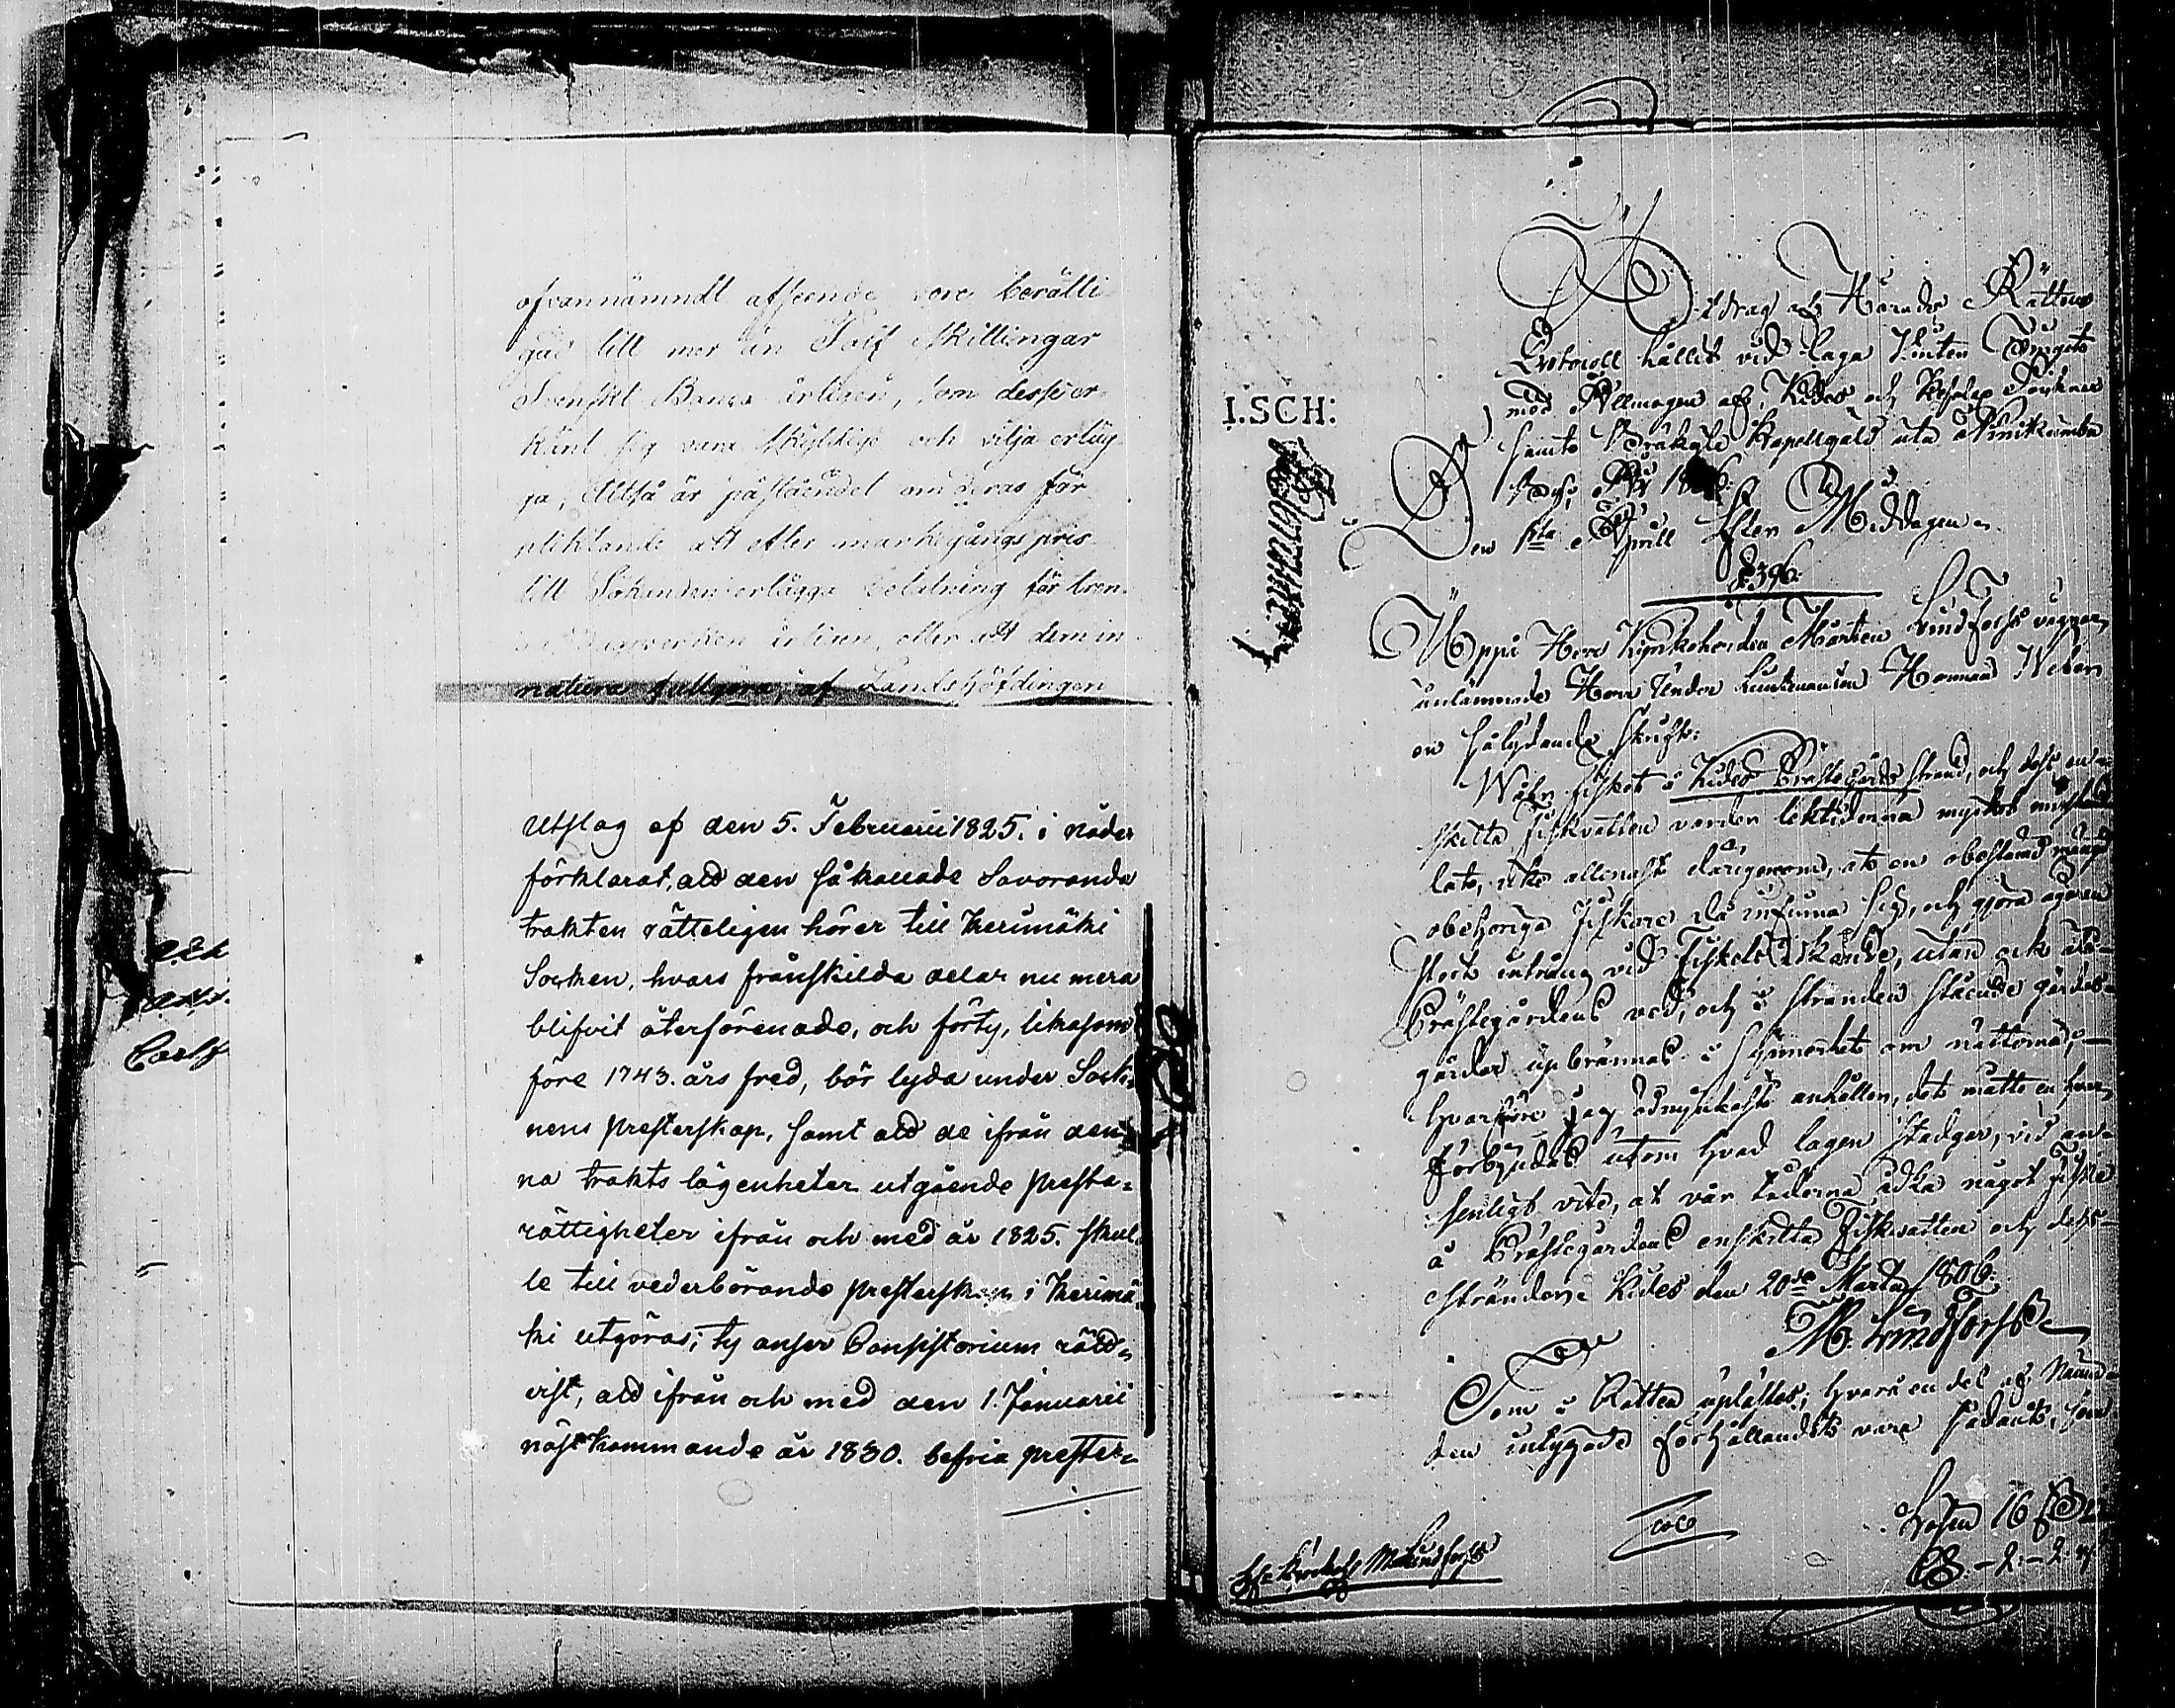 ofvannämndt afseende vore berätti
gad till mer än Tolf skillingar
Svenskt Banco årligen, som desse er-
känt sig vara skyldige och vilja erläg
ga; Altså är påståendet om deras för
pliktande att efter markegångs pris
till Sökanden erlägga betalning för tven-
ne Dagsverken årligen, eller att dem in
natura fullgöra, af Landshöfdingen
Utslag af den 5. Februarii 1825. i nåder
förklarat, att den så kallade Savoranda
trakten rätteligen hörer till Kerimäki
Socken, hvars frånskilda delar nu mera
blifvit återförenade, och förty, likasom
före 1743. års fred, bör lyda under Sock-
nens presterskap, samt att de ifrån den
na trakts lägenheter utgående presta-
rättigheter ifrån och med år 1825. skul-
le till vederbörande presterskap i Kerimä
ki utgöras; ty anser Consistorium rätt-
vist, att ifrån och med den 1. Januarii
nästkommande år 1830. befria prester-
och
Carl
I.SCH:
Utdrag af Härads Rättens
Protocoll hållit vid Laga Vinter Tinget
med Allmogen af Kides och Kesälax Soknar
samt Bräkylä Kapellgäld uti Niinikumbu
by, År 1806
Den 1sta April Efter Middagen
§ 396.
Uppå Herr Kyrkoherden Mårten Lundforss vägnar,
inlämnade Herr Under Lieutenanten Herman Weber
en så lydande skrift:
Wåhr fisket å Kides Prästegårds strand, och dess en-
skilta fiskvatten varder lektiderna mycket
lat, icke allenast därigenom, at en obestämd mängd
obehöriga fiskare då infinna sig, och gjöra ägaren
stort intrång vid Fiskets idkande, utan ock at
Prästegårdens ved, och å stranden stående gärdes-
gårdar upbrännas i synnerhet om nätterna,
hvarföre jag ödmjukast anhåller, det måtte en hvar
förbjudas utom hvad lagen stadgar, vid an-
senligt vite, at vår tiderna idka något fiske
å Prästegårdens enskilta Fiskevatten och dess
stränder. Kides den 20de Martii 1806.
M. Lundforss
Som i Rätten uplästes; hvarå en del af Nämn-
den intygade förhållandet vara sådant, som
Lösen 16
2 - 2
Hr Kyrkoh M Lundforss